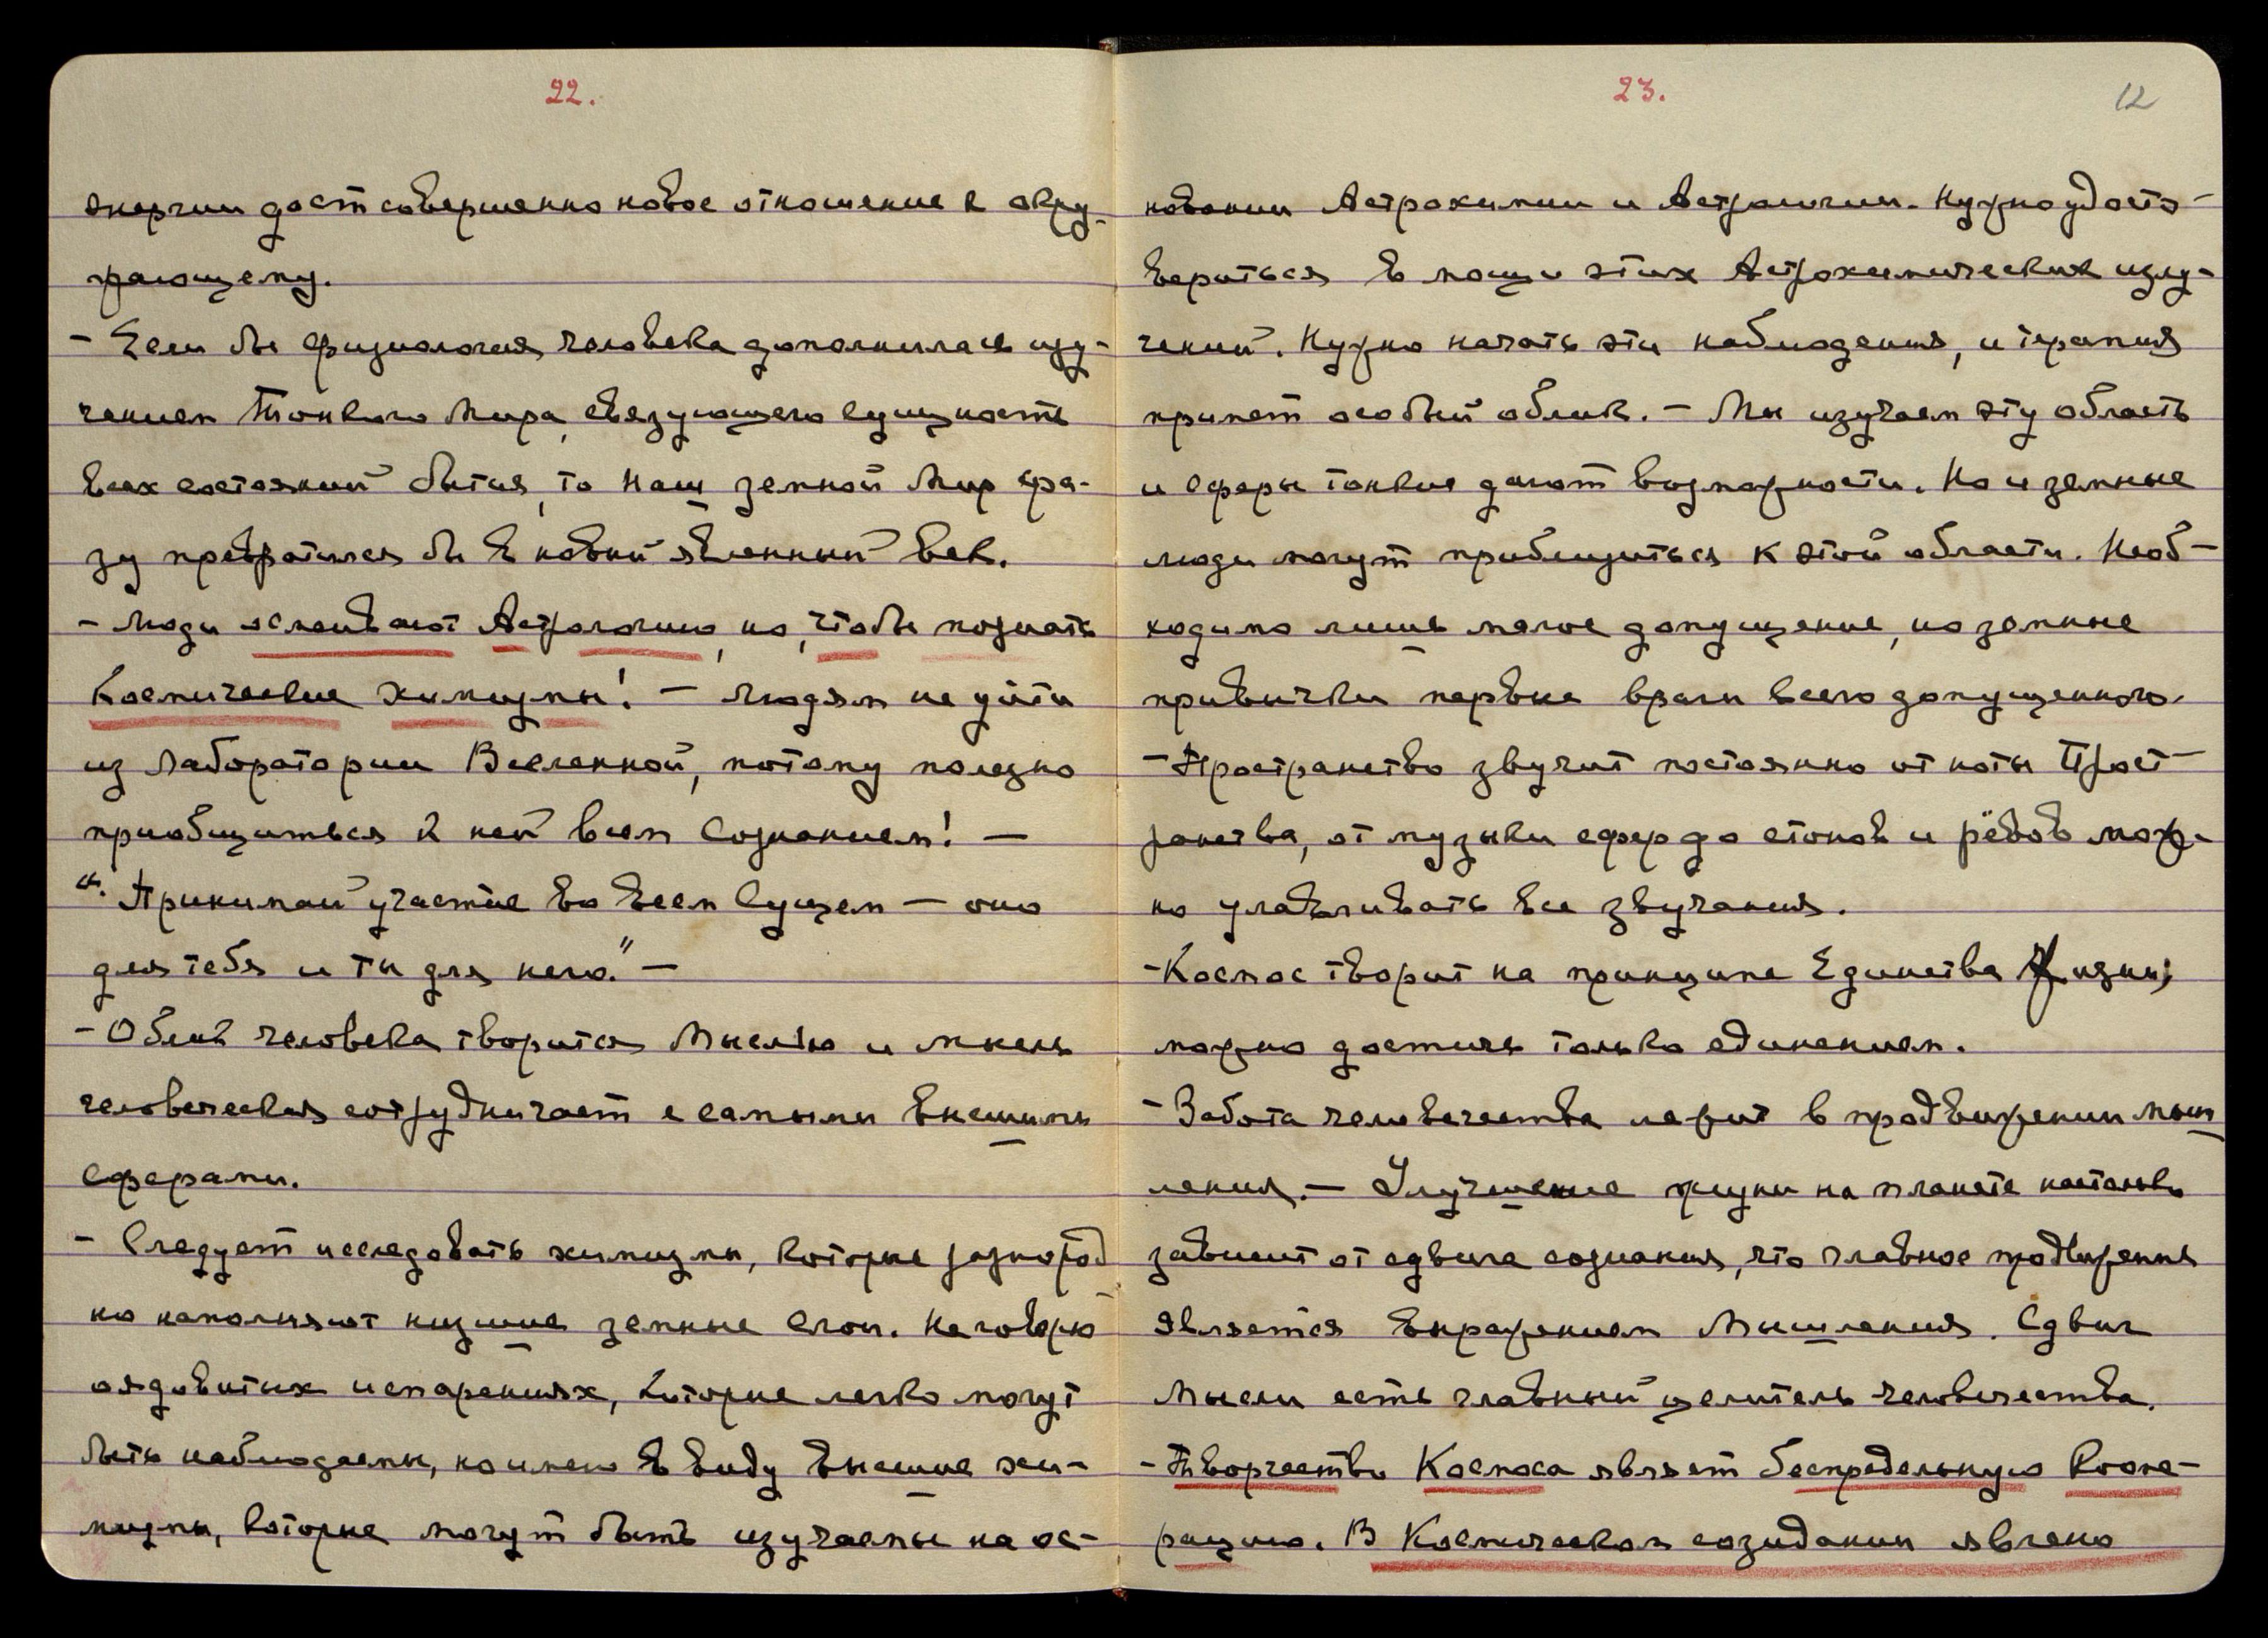 22.
энергии даст совершенно новое отношение к окру-
жающему.
- Если бы физиология человека дополнилась изу-
чением Тонкого Мира, связующего сущность
всех состояний бытия, то наш земной Мир сра-
зу превратился бы в новый явленный век.
- Люди осмеивают Астрологию, но, чтобы познать
Космические химизмы! - Людям не уйти
из Лаборатории Вселенной, потому полезно
приобщиться к ней всем Сознанием! -
"Принимай участие во всем Сущем - оно
для тебя и ты для него." -
- Облик человека творится Мыслью и мысль
человеческая сотрудничает с самыми внешними
сферами.
- Следует исследовать химизмы, которые разнород
но наполняют низшие земные слои. Не говорю
о ядовитых испарениях, которые легко могут
быть наблюдаемы, но имею в виду внешние хи-
мизмы, которые могут быть изучаемы на ос-
23.
12
новании Астрохимии и Астрологии. Нужно удосто-
вериться в мощи этих Астрохимических излу-
чений. Нужно начать эти наблюдения, и терапия
примет особый облик. - Мы изучаем эту область
и сферы тонкие дают возможности. Но и земные
люди могут приблизиться к этой области. Необ-
ходимо лишь малое допущение, но земные
привычки первые враги всего допущенного.
- Пространство звучит постоянно от ноты Прост-
ранства, от музыки сфер до стонов и рёвов мож-
но улавливать все звучания.
- Космос творит на принципе Единства Жизни;
можно достичь только единением.
- Забота человечества лежит в продвижении мыш
ления. - Улучшение жизни на планете настолько
зависит от сдвига сознания, что главное продвижение
является выражением Мышления. Сдвиг
Мысли есть главный целитель человечества.
- Творчество Космоса являет беспредельную Коопе-
рацию. В Космическом созидании явлено